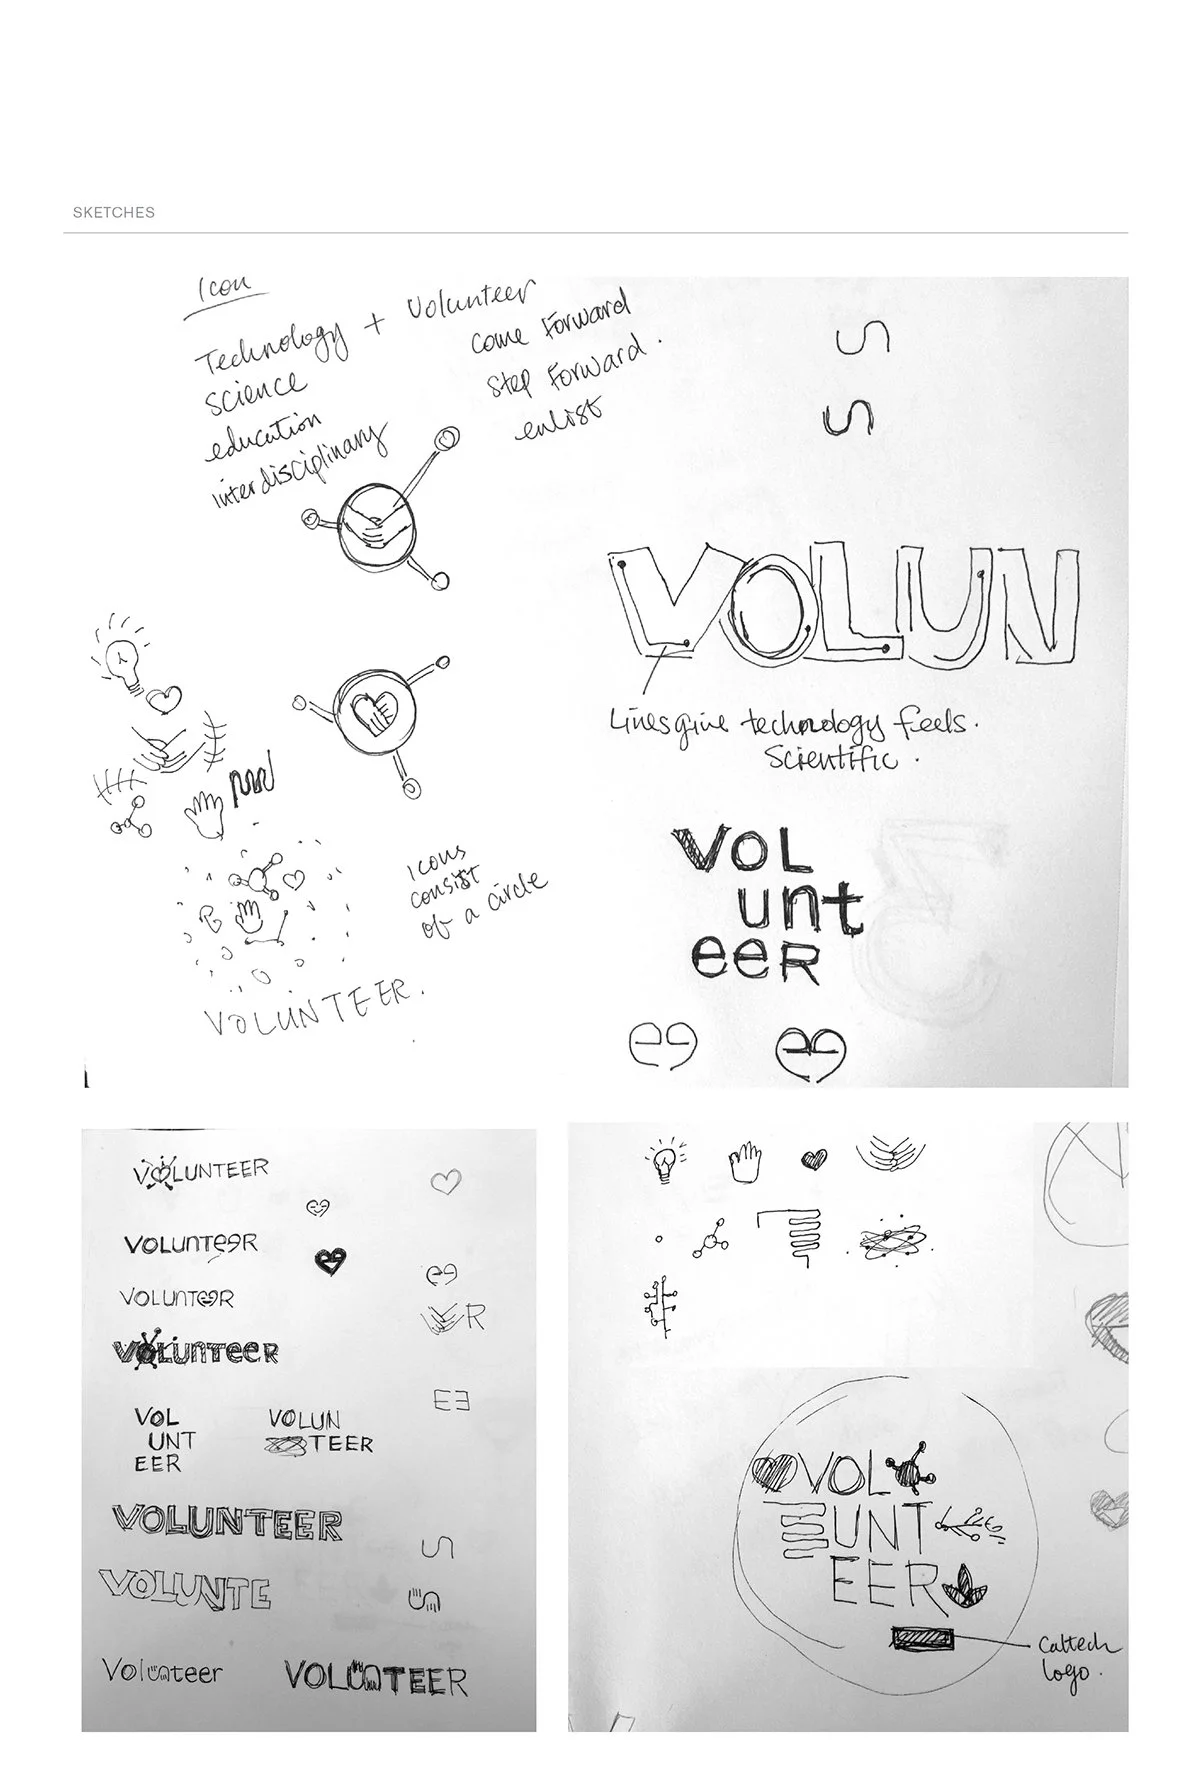 SKETCHES
Icon
Technology + Volunteer
science
education
interdisciplinary
come Forward
Step Forward.
enlist
VOLUN
Lines give technology feels.
Scientific.
VOL
unt
eeR
Icons
consist
of a circle
VOLUNTEER.
VOLUNTEER
VOLUNTEER
VOLUNTEER
VOLUNTEER
R
VOL
UNT
EER
VOLUN
TEER
VOLUNTEER
VOLUNTE
Volunteer
VOLUNTEER
VOL
UNT
EER
Caltech
logo.